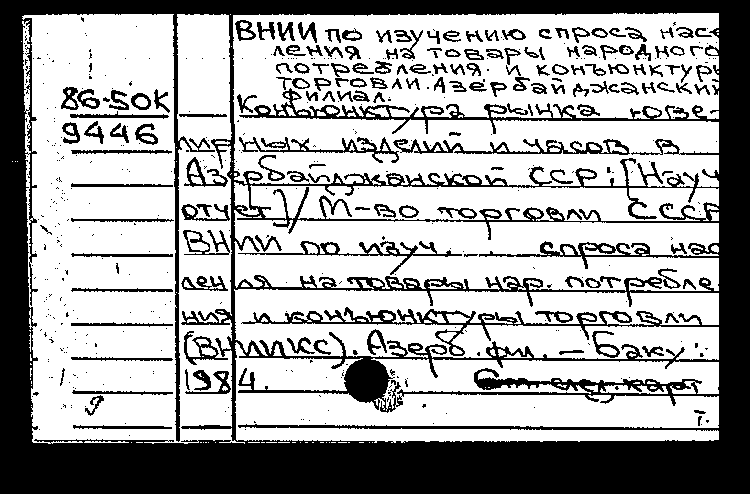 ВНИИ по изучению спроса насе
ления на товары народного
потребления и конъюнктуры
торговли. Азербайджанский
филиал.
86-50К
9446
Конъюнктура рынка ювэ-
лирных изделий и часов в
Азербайджанской ССР: [Науч
отчет] / М-во торговли СССР
ВНИИ по изуч. спроса нас
ления на товары нар. потребле-
ния и конъюнктуры торговли
(ВНИИКС). Азерб. фил. — Баку:
1984.
См. след. карт
9
т.